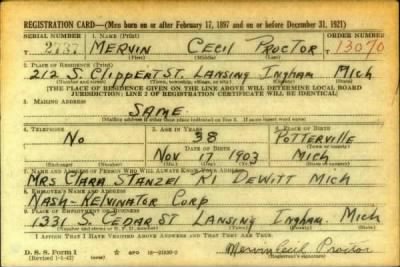 REGISTRATION CARD—(Men born on or after February 17, 1897 and on or before December 31, 1921)
SERIAL NUMBER 1. NAME (Print) ORDER NUMBER
T 2737 MERVIN CECIL PROCTOR T 13070
(First) (Middle) (Last)
2. PLACE OF RESIDENCE (Print)
212 S. CLIPPERT ST. LANSING INGHAM MICH
(Number and street) (Town, township, village, or city) (County) (State)
[THE PLACE OF RESIDENCE GIVEN ON THE LINE ABOVE WILL DETERMINE LOCAL BOARD
JURISDICTION; LINE 2 OF REGISTRATION CERTIFICATE WILL BE IDENTICAL]
3. MAILING ADDRESS
SAME.
(Mailing address if other than place indicated on line 2. If same insert word same)
4. TELEPHONE 5. AGE IN YEARS 6. PLACE OF BIRTH
NO 38 POTTERVILLE
DATE OF BIRTH
NOV 17 1903 MICH
7. NAME AND ADDRESS OF PERSON WHO WILL ALWAYS KNOW YOUR ADDRESS
MRS CLARA STANZEL R1 DEWITT MICH
8. EMPLOYER'S NAME AND ADDRESS
NASH-KELVINATOR CORP
9. PLACE OF EMPLOYMENT OR BUSINESS
1331 S. CEDAR ST LANSING INGHAM. MICH
(Number and street or R. F. D. number) (Town) (County) (State)
I AFFIRM THAT I HAVE VERIFIED ABOVE ANSWERS AND THAT THEY ARE TRUE.
D. S. S. Form 1 GPO 16-21630-2 Mervin Cecil Proctor
(Revised 1-1-42) (Registrant's signature)